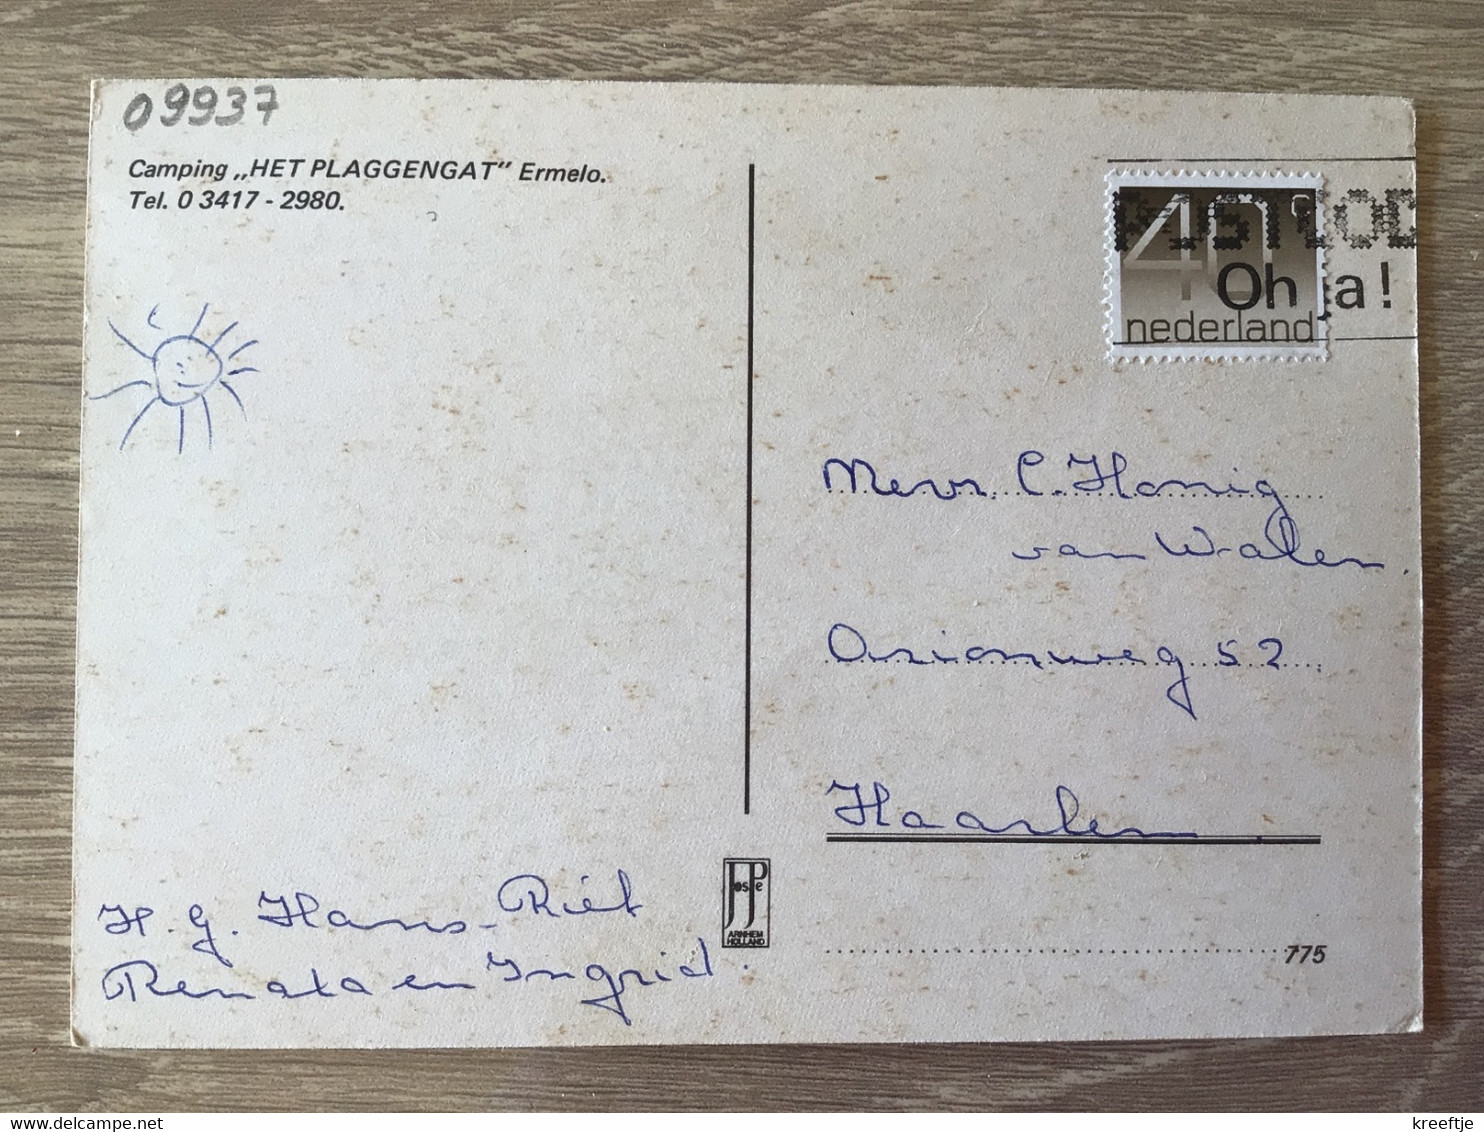 09937
Camping „HET PLAGGENGAT" Ermelo.
Tel. 0 3417 - 2980.
40
Oh ja!
nederland
Mevr. C. Honig
van Walen.
Orionweg 52.
Haarlem
H.g. Hans-Riet
Renata en Ingrid.
JosPe
ARNHEM
HOLLAND
775
kreeftje